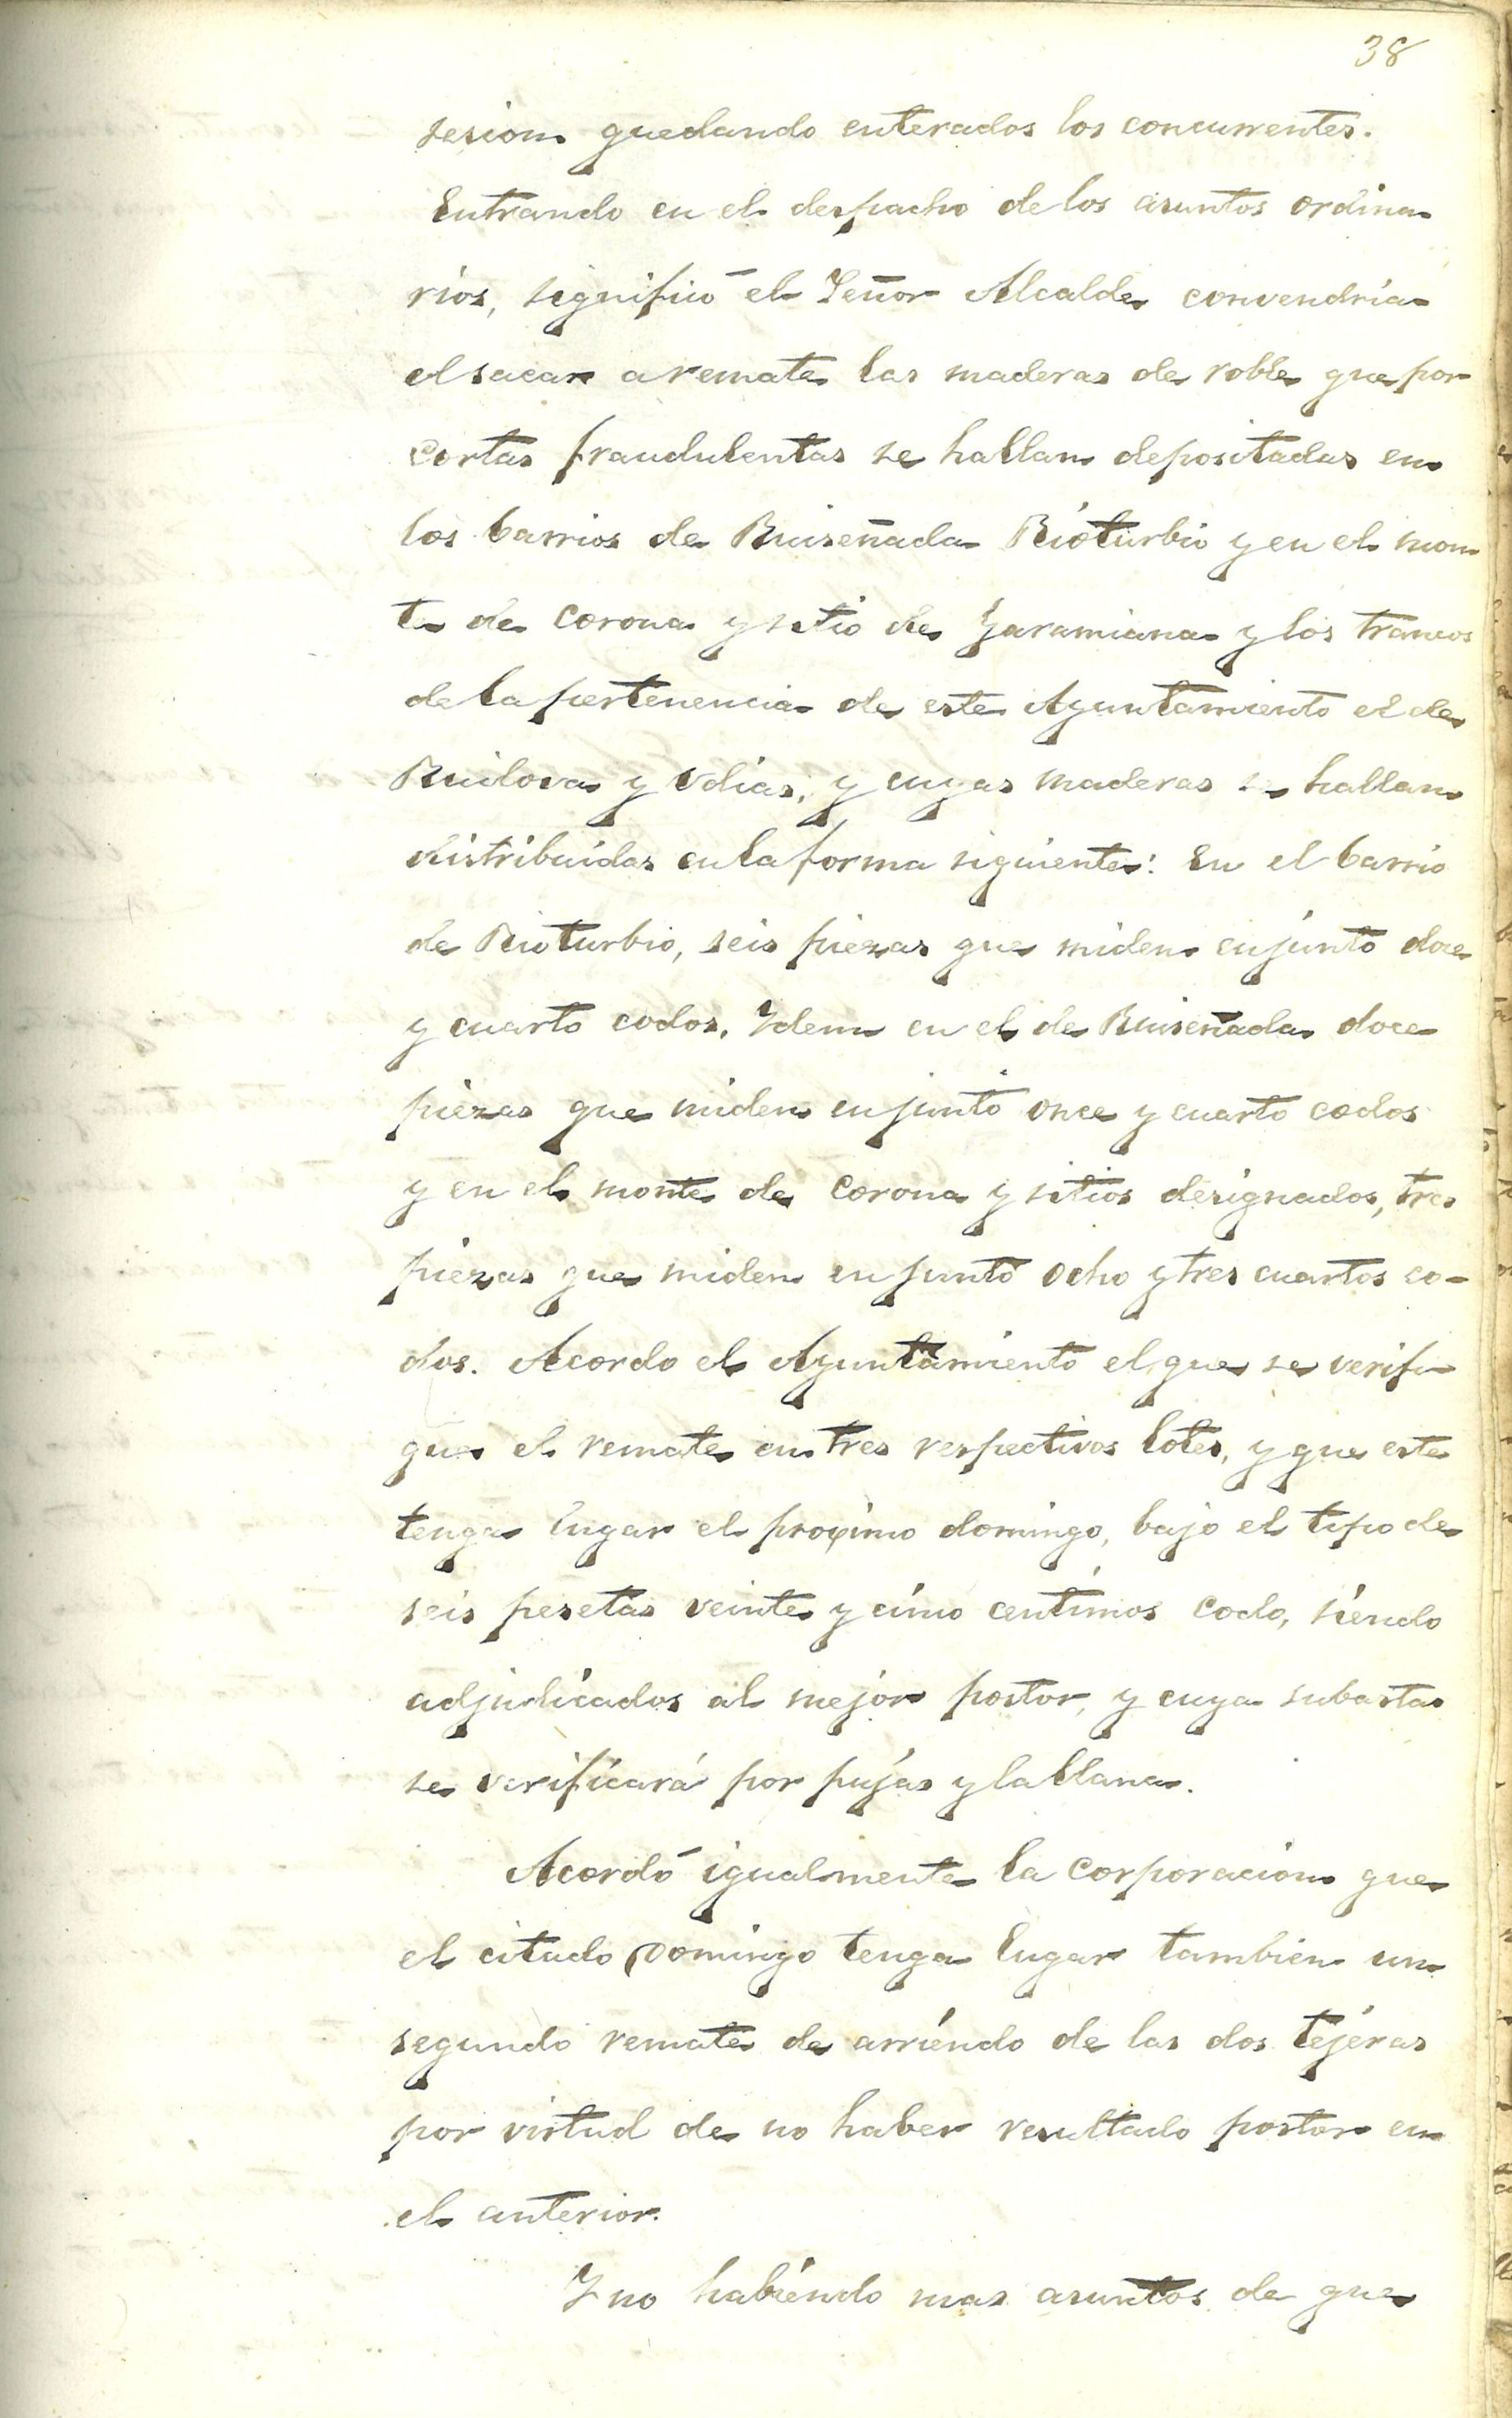 38
sesion quedando enterados los concurrentes.
Entrando en el despacho de los asuntos ordina
rios, significó el Señor Alcalde convendria
el sacar a remate las maderas de roble que por
cortas fraudulentas se hallan depositadas en
los barrios de Ruiseñada Rioturbio y en el mon
te de Corona y sitio de Jaramiana y los trancos
de la pertenencia de este Ayuntamiento el de
Ruilova y Udias, y cuyas maderas se hallan
distribuidas en la forma siguiente: En el barrio
de Rioturbio, seis piezas que miden en junto doce
y cuarto codos, Idem en el de Ruiseñada doce
piezas que miden en junto once y cuarto codos
y en el monte de Corona y sitios designados, tres
piezas que miden en junto ocho y tres cuartos co-
dos. Acordo el Ayuntamiento el que se verifi
que el remate en tres respectivos lotes, y que este
tenga lugar el proximo domingo, bajo el tipo de
seis pesetas veinte y cinco centimos codo, siendo
adjudicados al mejor postor, y cuya subasta
se verificará por pujas y la llana.
Acordó igualmente la Corporacion que
el citado Domingo tenga lugar tambien un
segundo remate de arriendo de las dos tejeras
por virtud de no haber resultado postor en
el anterior.
Y no habiendo mas asuntos de que